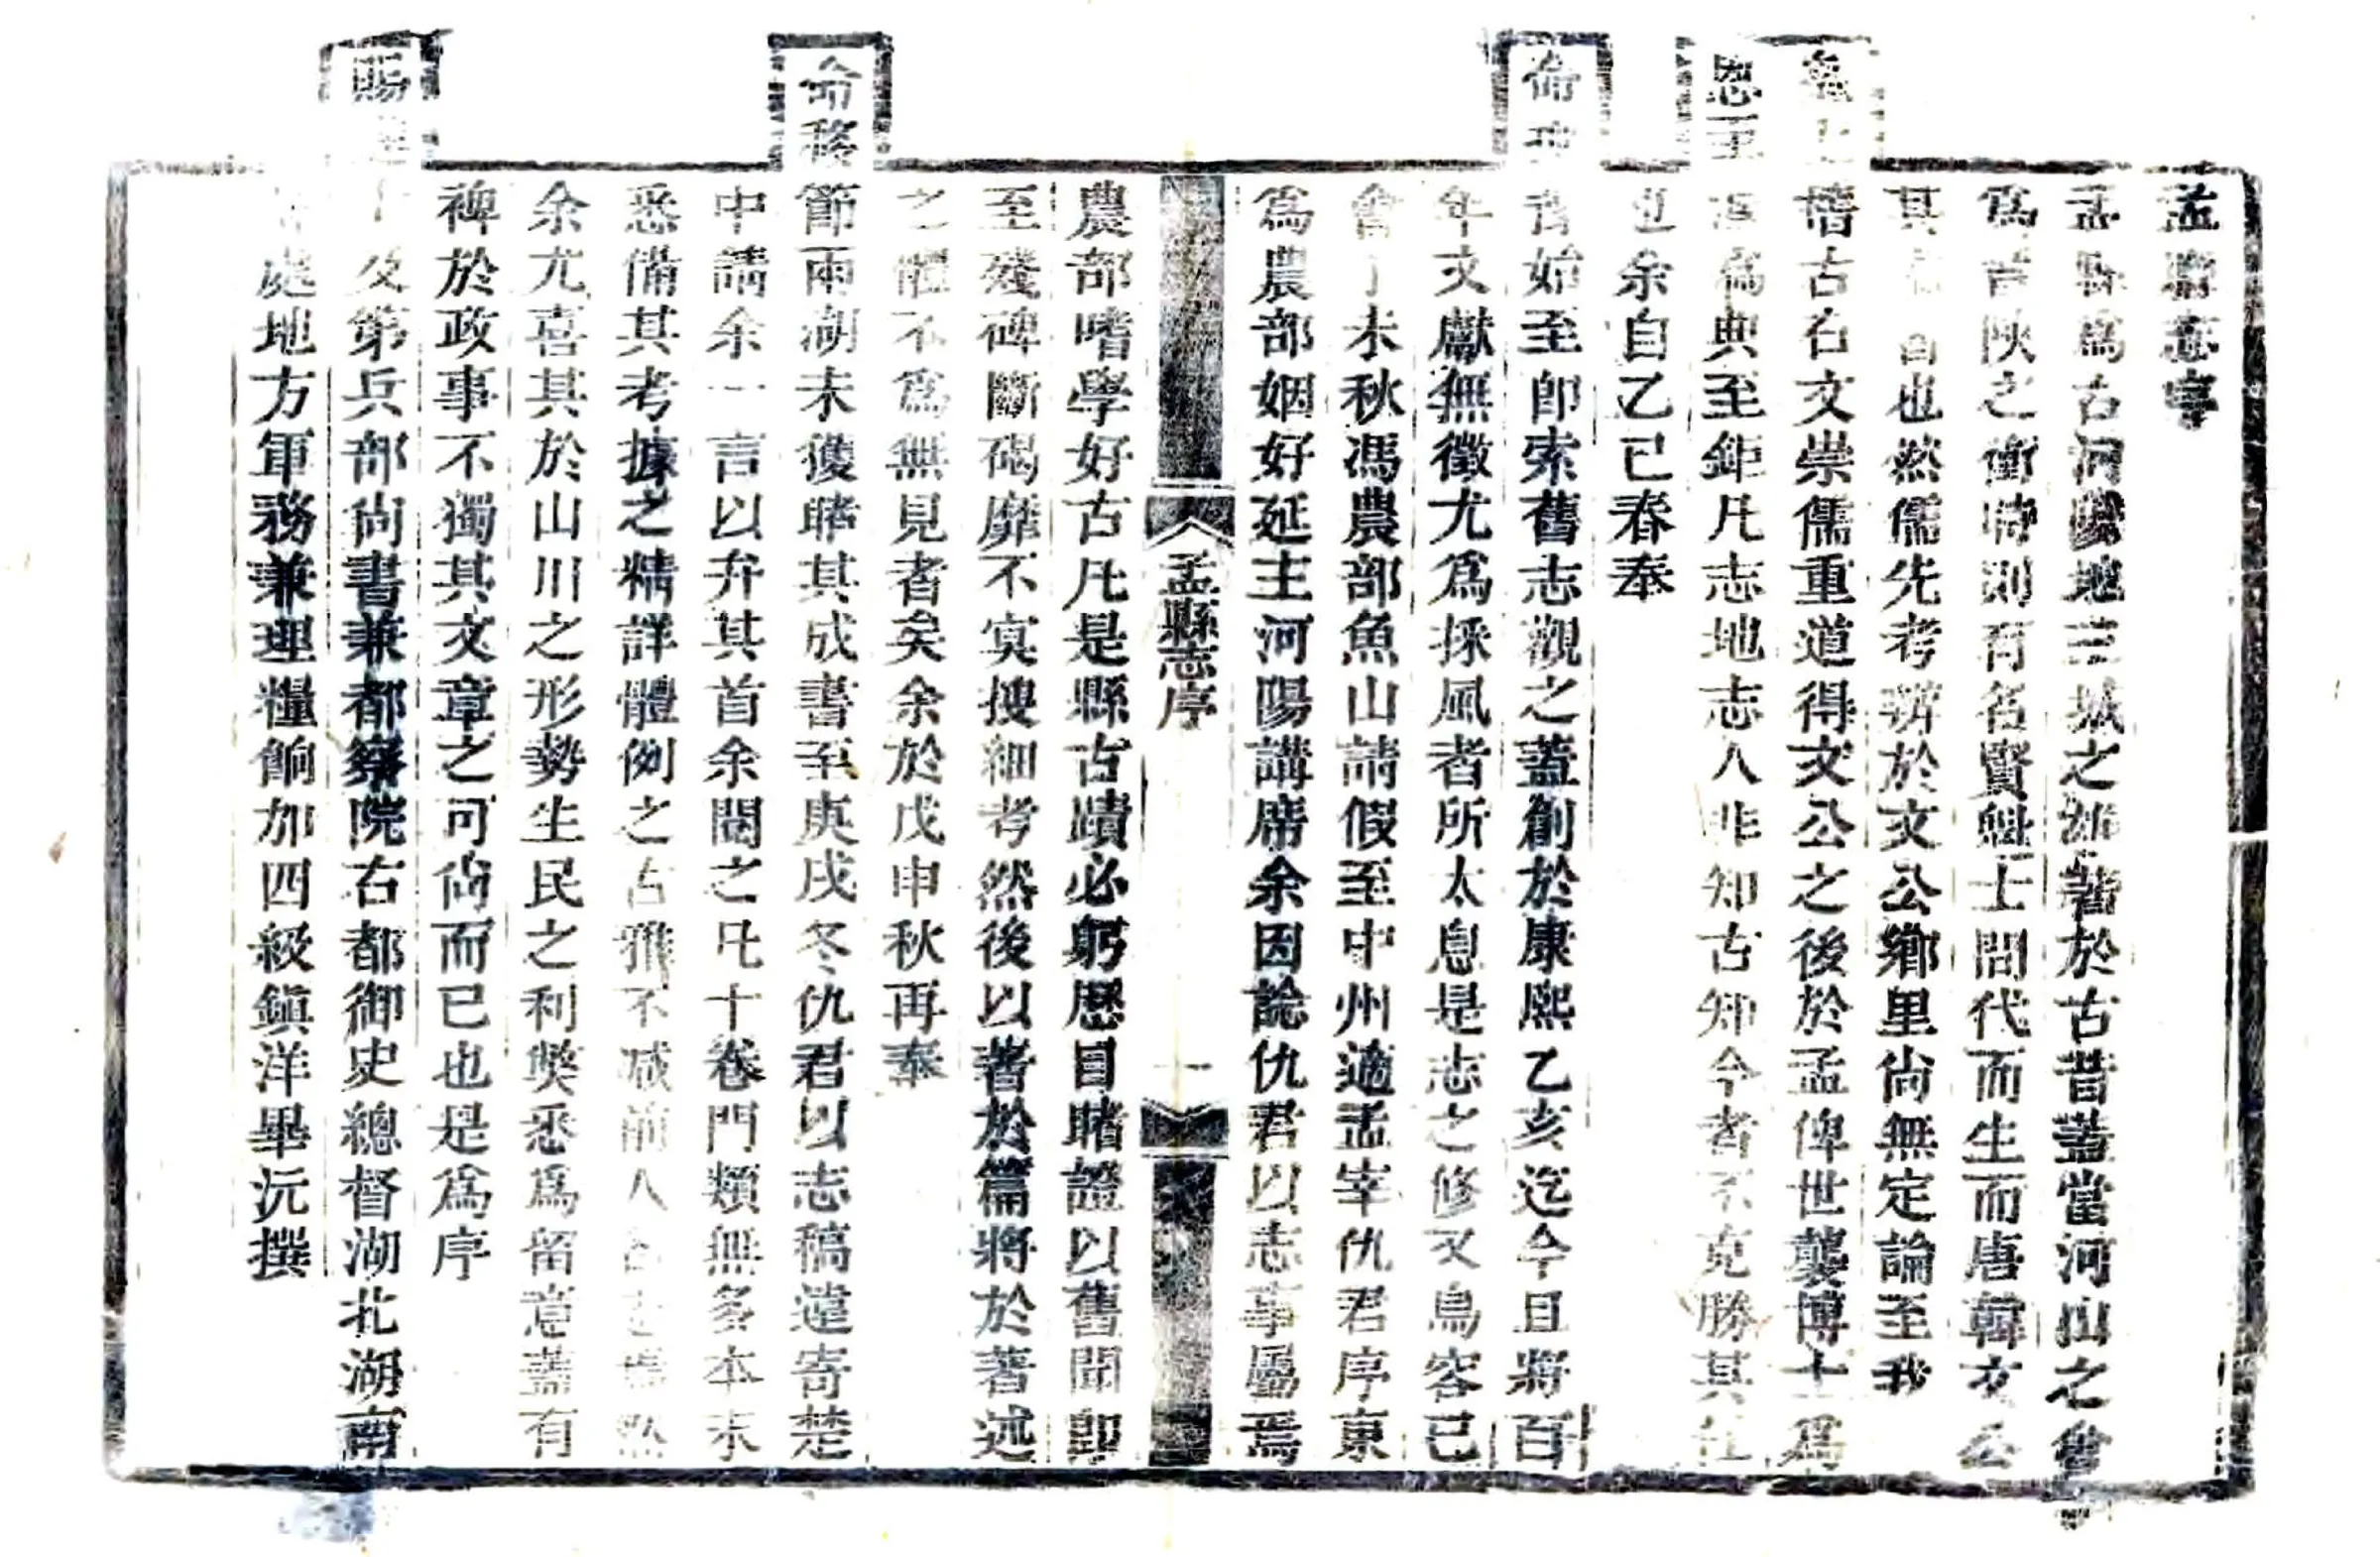 孟縣志序
孟縣為古河陽地三城之雄著於古昔蓋當河山之會
為晉陝之衝時則有名賢魁士間代而生而唐韓文公
其也然儒先考辨於文公鄉里尙無定論至我
稽古右文崇儒重道得文公之後於孟俾世襲博士為
恩至為典至鉅凡志地志人非知古知今者不克勝其任
也余自乙巳春奉
命始至卽索舊志觀之蓋創於康熙乙亥迄今且將百
年文獻無徵尤爲採風者所太息是志之修又烏容已
會丁未秋馮農部魚山請假至中州適孟宰仇君序東
爲農部姻好延主河陽講席余因論仇君以志事屬焉
孟縣志序
一
農部嗜學好古凡是縣古蹟必躬歷目睹證以舊聞卽
至殘碑斷碣靡不冥搜細考然後以著於篇將於著述
之體不爲無見者矣余於戊申秋再奉
命移節兩湖未獲睹其成書至庚戌冬仇君以志稿遠寄楚
中請余一言以弁其首余閱之凡十卷門類無多本末
悉備其考據之精詳體例之古雅不减前人
余尤喜其於山川之形勢生民之利獘悉爲留意蓋有
裨於政事不獨其文章之可尙而已也是爲序
賜及第兵部尙書兼都察院右都御史總督湖北湖南
處地方軍務兼理糧餉加四級鎭洋畢沅撰